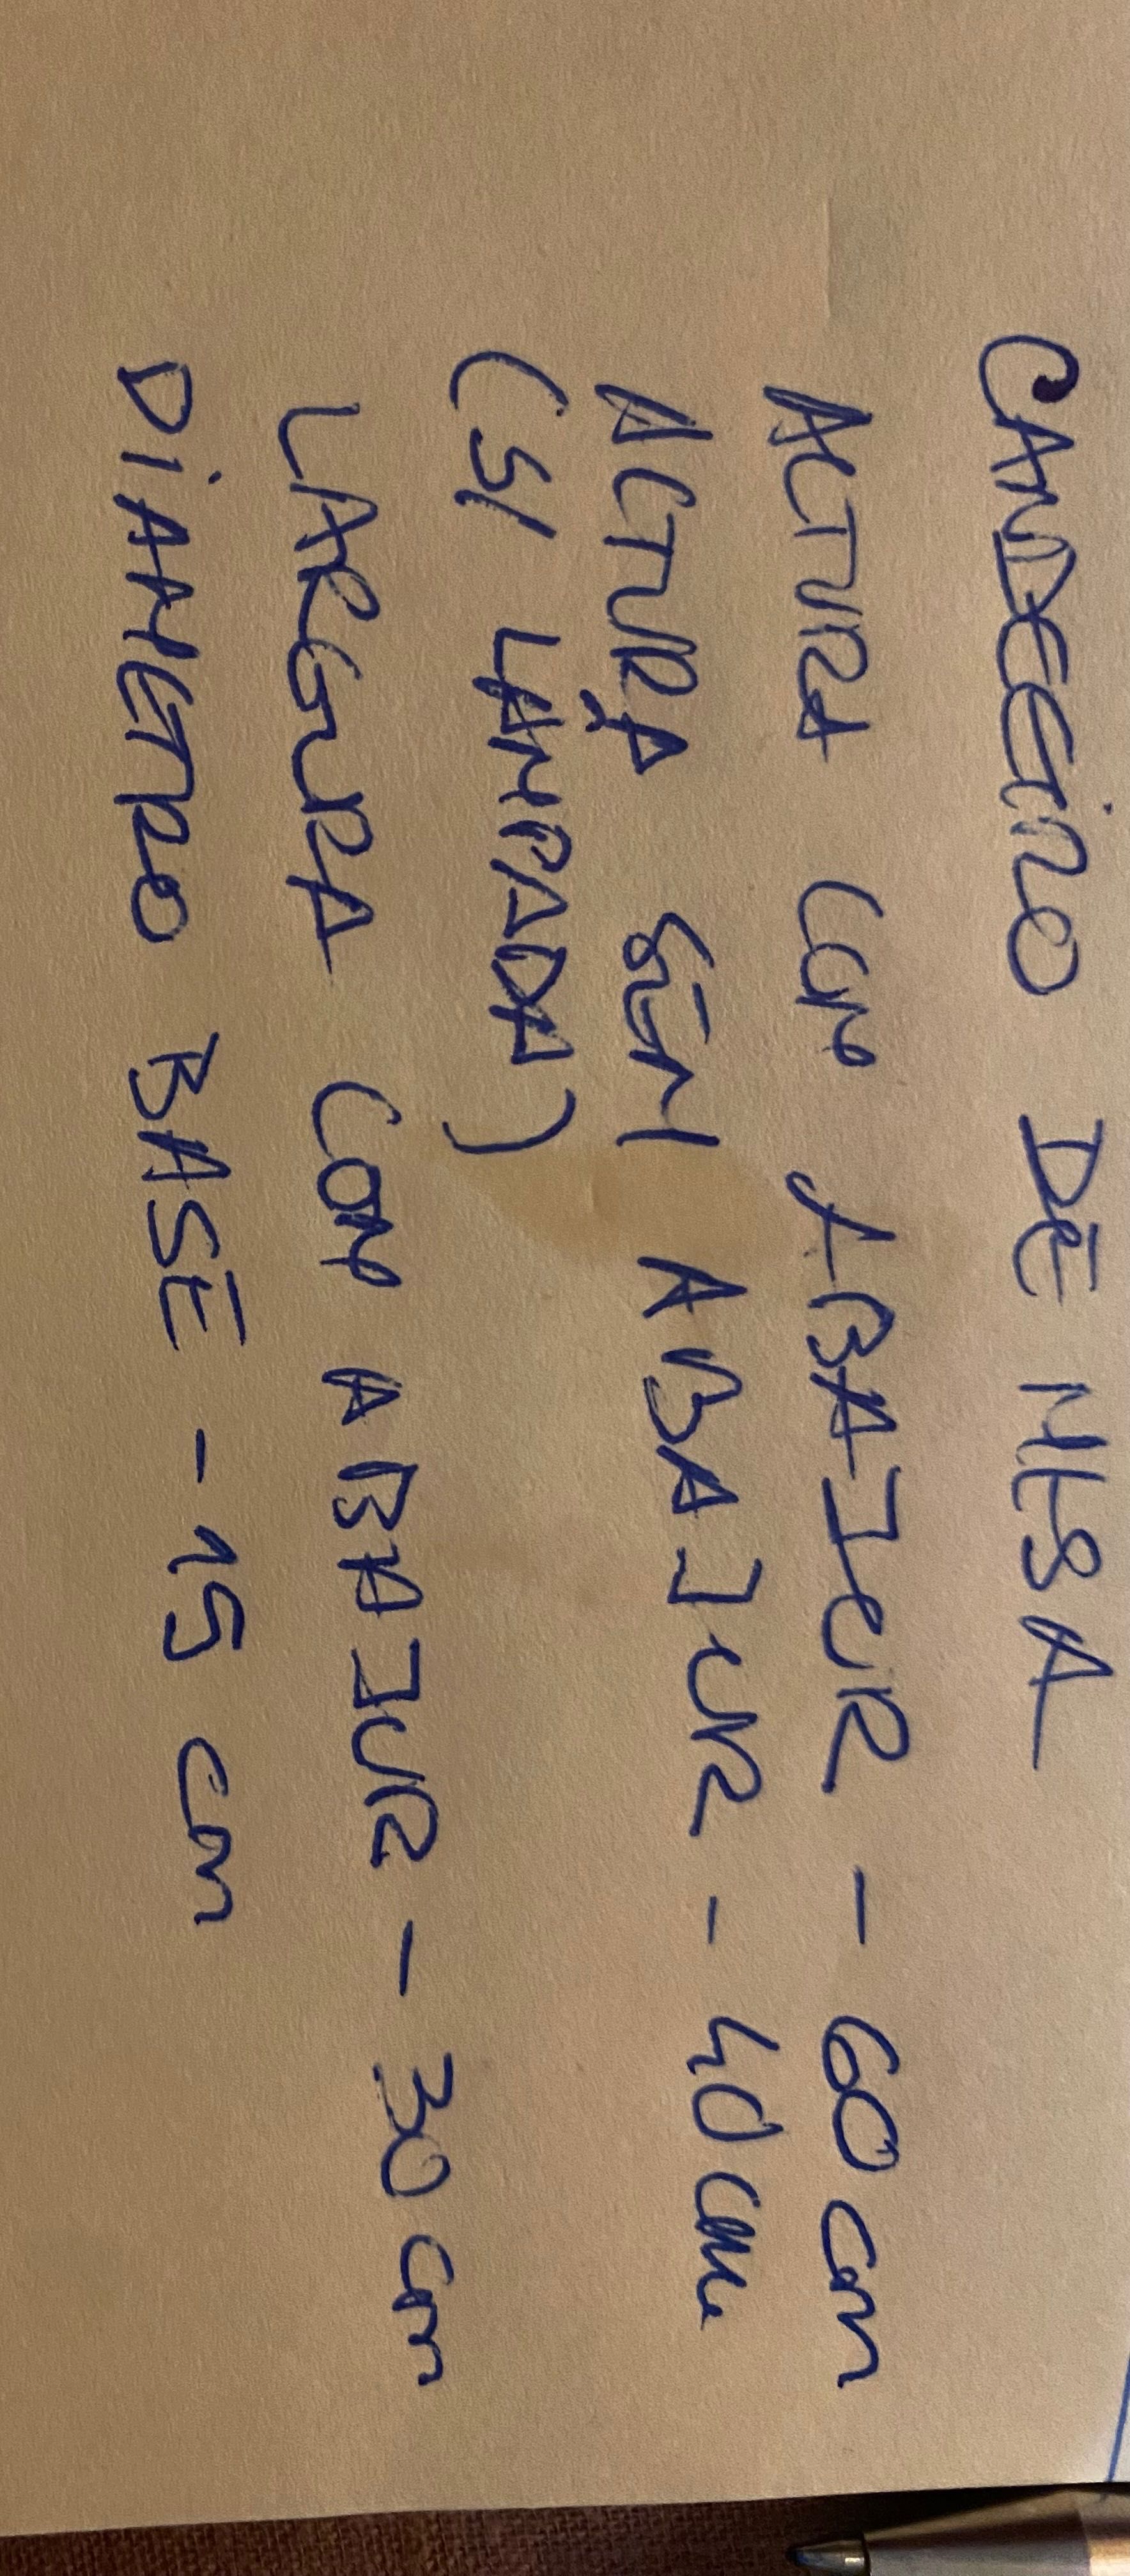 CANDEEIRO DE MESA
ALTURA COM ABAJUR - 60 cm
ALTURA SEM ABAJUR - 40 cm
(S/ LÂMPADA)
LARGURA COM ABAJUR - 30 cm
DIAMETRO BASE - 15 cm